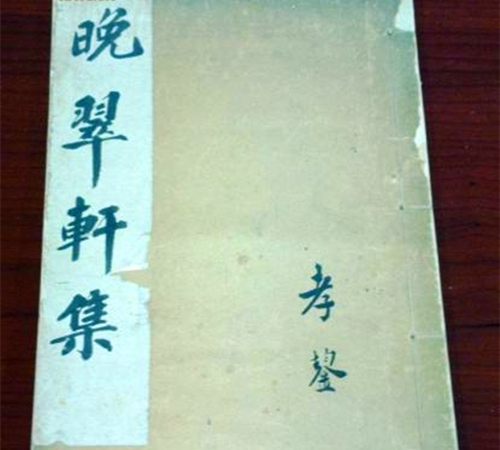 晚翠軒集
孝鋆